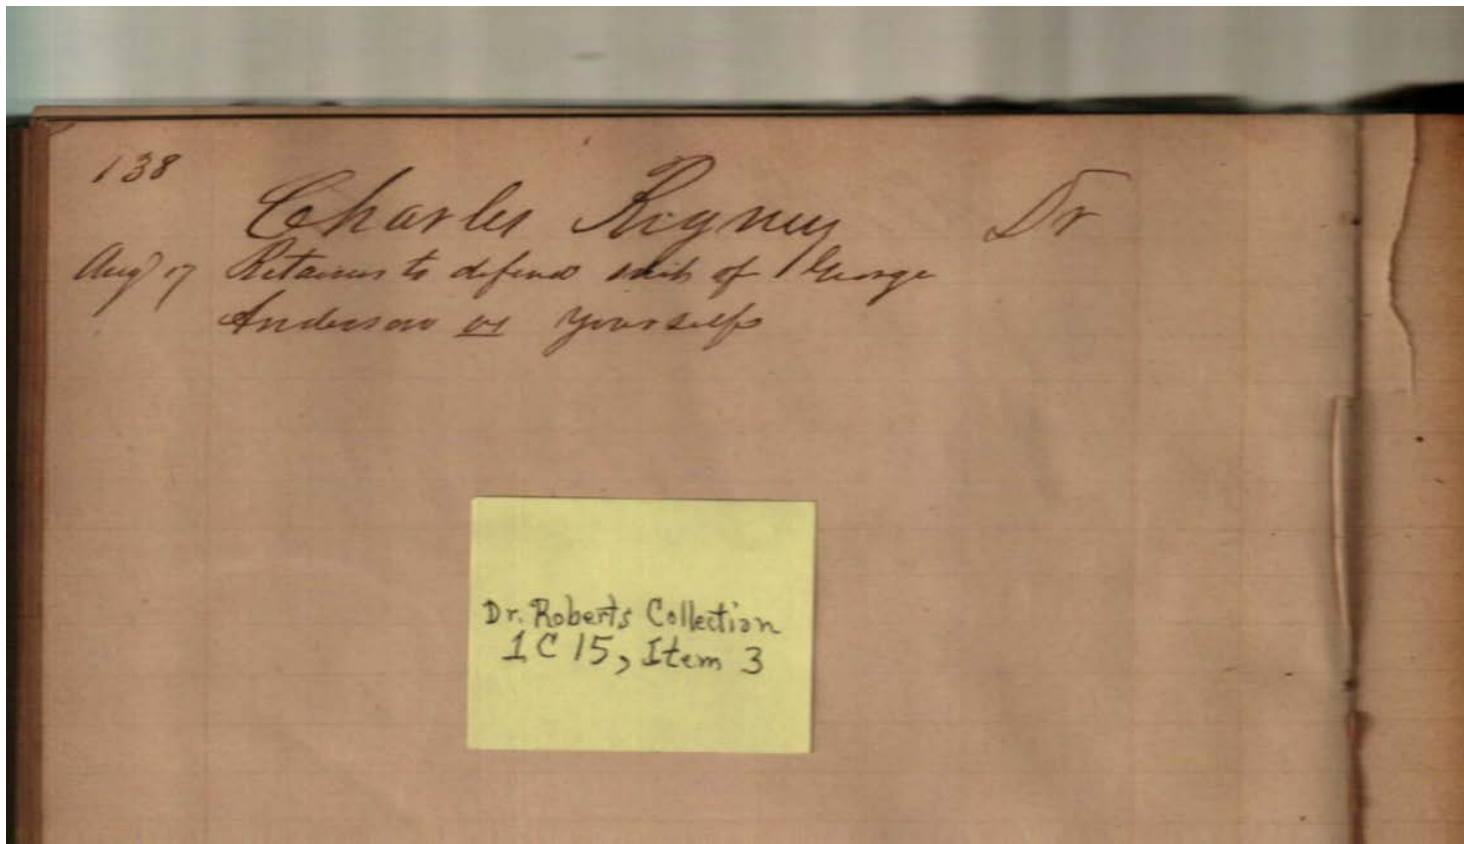 138
Charles Rigney Dr
Aug 17 Retainer to defend suit of George
Anderson vs yourself
Dr. Roberts Collection
1C15, Item 3